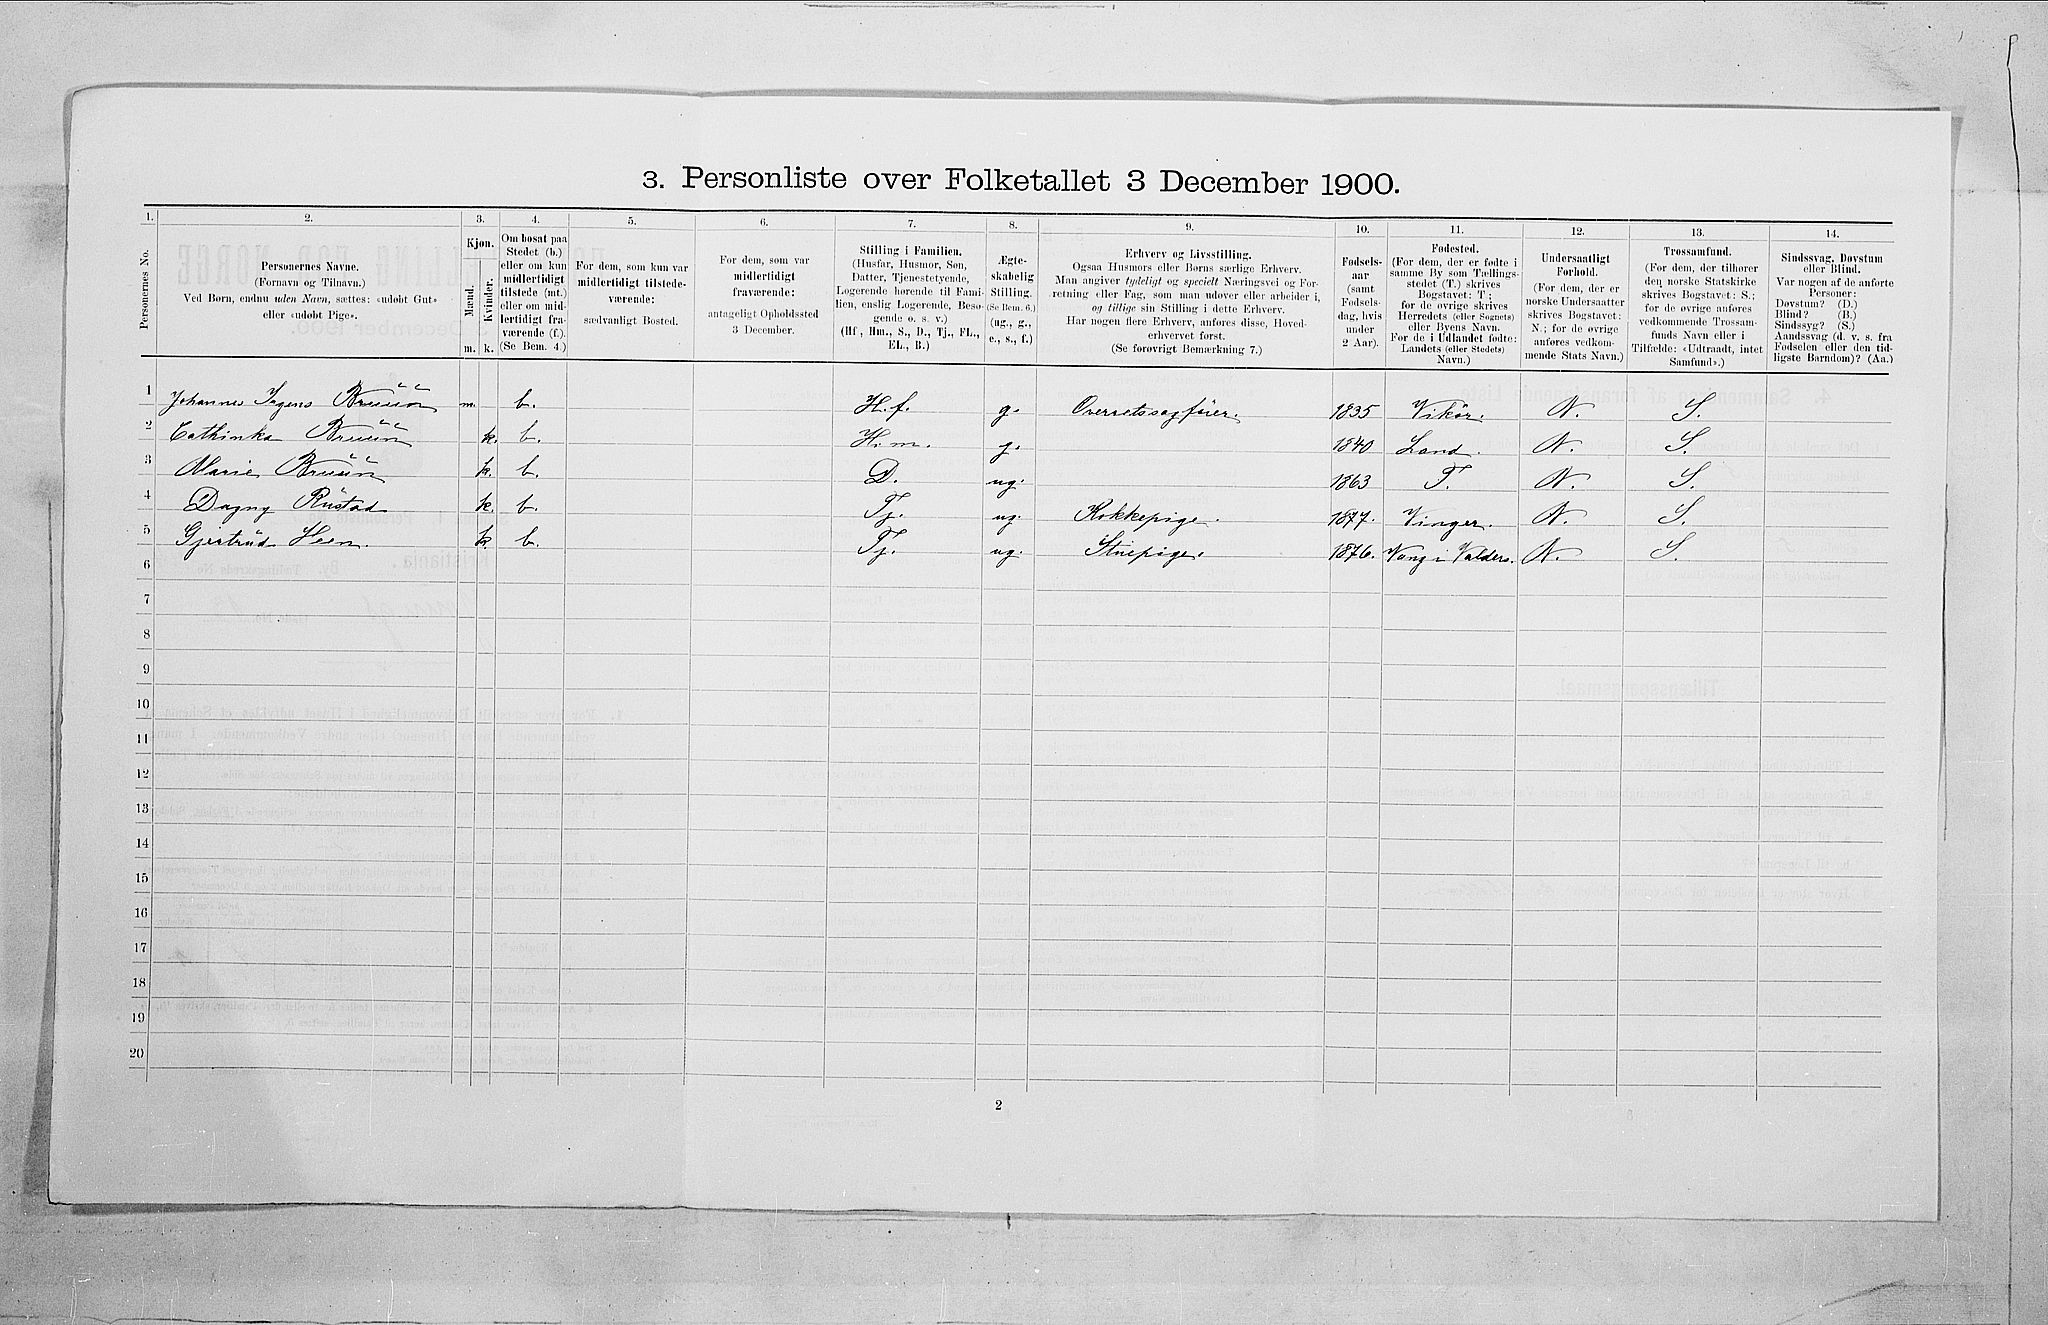 3. Personliste over Folketallet 3 December 1900.
1. 2. 3. 4. 5. 6. 7. 8. 9. 10. 11. 12. 13. 14.
Personernes No.
Personernes Navne.
(Fornavn og Tilnavn.)
Ved Børn, endnu uden Navn, sættes: «udøbt Gut»
eller «udøbt Pige».
Kjøn.
Mænd.
Kvinder.
m. k.
Om bosat paa
Stedet (b.)
eller om kun
midlertidigt
tilstede (mt.)
eller om mid-
lertidigt fra-
værende (f.)
(Se Bem. 4.)
For dem, som kun var
midlertidigt tilstede-
værende:
sædvanligt Bosted.
For dem, som var
midlertidigt
fraværende:
antageligt Opholdssted
3 December.
Stilling i Familien.
(Husfar, Husmor, Søn,
Datter, Tjenestetyende,
Logerende hørende til Fami-
lien, enslig Logerende, Besø-
gende o. s. v.)
(Hf, Hm., S., D., Tj., FL.,
EL., B.)
Ægte-
skabelig
Stilling.
(Se Bem. 6.)
(ug., g.,
e., s., f.)
Erhverv og Livsstilling.
Ogsaa Husmors eller Børns særlige Erhverv.
Man angiver tydeligt og specielt Næringsvei og For-
retning eller Fag, som man udøver eller arbeider i,
og tillige sin Stilling i dette Erhverv.
Har nogen flere Erhverv, anføres disse, Hoved-
erhvervet først.
(Se forøvrigt Bemærkning 7.)
Fødsels-
aar
(samt
Fødsels-
dag, hvis
under
2 Aar).
Fødested.
(For dem, der er fødte i
samme By som Tællings-
stedet (T.) skrives
Bogstavet: T;
for de øvrige skrives
Herredets (eller Sognets)
eller Byens Navn.
For de i Udlandet fødte:
Landets (eller Stedets)
Navn.)
Undersaatligt
Forhold.
(For dem, der er
norske Undersaatter
skrives Bogstavet:
N.; for de øvrige
anføres vedkom-
mende Stats Navn.)
Trossamfund.
(For dem, der tilhører
den norske Statskirke
skrives Bogstavet: S.;
for de øvrige anføres
vedkommende Trossam-
funds Navn eller i
Tilfælde: «Udtraadt, intet
Samfund».)
Sindssvag, Døvstum
eller Blind.
Var nogen af de anførte
Personer:
Døvstum? (D.)
Blind? (B.)
Sindssyg? (S.)
Aandssvag (d. v. s. fra
Fødselen eller den tid-
ligste Barndom)? (Aa.)
1 Johannes Irgens Bruun m. b. H.f. g. Overretssagfører. 1835 Vikör. N. S.
2 Cathinka Bruun k. b. H.m. g. 1840 Land. N. S.
3 Marie Bruun k. b. D. ug. 1863 T. N. S.
4 Dagny Rustad k. b. Tj. ug. Kokkepige. 1877. Vinger. N. S.
5 Gjertrud Heen. k. b. Tj. ug. Stuepige. 1876. Vang i Valders. N. S.
6
7
8
9
10
11
12
13
14
15
16
17
18
19
20
2